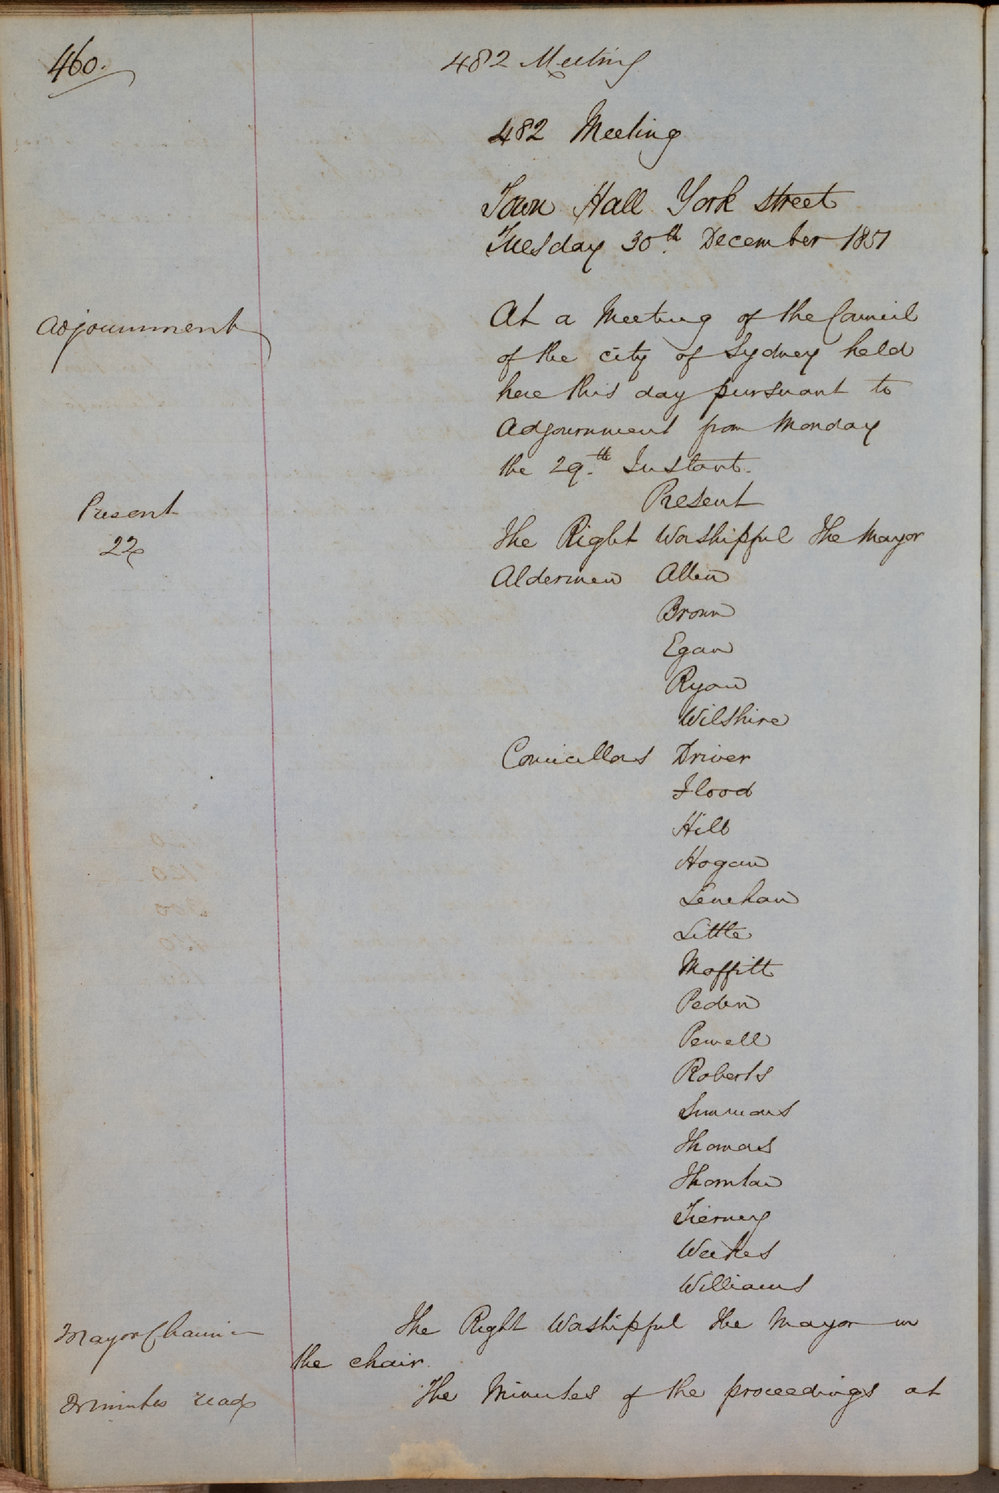 460.
482 Meeting
482 Meeting
Town Hall York street
Tuesday 30th December 1851
Adjournment
At a Meeting of the Council
of the city of Sydney held
here this day pursuant to
Adjournment from Monday
the 29th Instant.
Present
Present
22
The Right Worshipful The Mayor
Aldermen Allen
Brown
Egan
Ryan
Wilshire
Councillors Driver
Flood
Hill
Hogan
Lenehan
Little
Moffitt
Peden
Pewell
Roberts
Simmons
Thomas
Thornton
Tierney
Weekes
Williams
Mayor Chair
The Right Worshipful the Mayor in
the chair.
Minutes read
The Minutes of the proceedings at